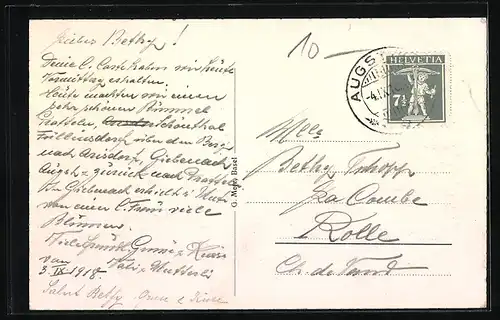 Liebes Bethy!
Deine l. Karte haben wir heute
Vormittag erhalten.
Heute machten wir einen
sehr schönen Bummel
Pratteln, Schönthal
Füllinsdorf über den Berg
nach Arisdorf, Giebenach
Augst & zurück nach Pratteln
In Giebenach erhielt
von einer l. Frau viele
Blumen.
Viele Grüsse & Küsse
von Vati & Mutterli
3. IX. 1918.
Salut Betty
G. Metz, Basel
10 -
AUGST
HELVETIA
7½
Mlle
Bethy Tschopp
La Combe
Rolle
Ct. de Vaud